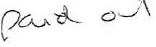 paid out